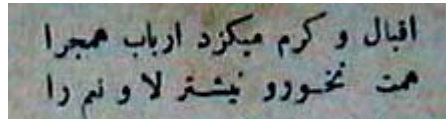 اقبال و کرم میکزد ارباب همجرا
همت نخورو نیشتر لا و نم را